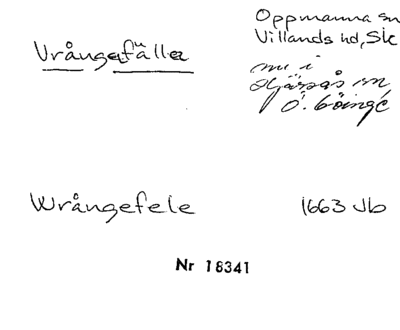 Vrångafälla
Oppmanna sn
Villands hd, Sk
nu i
Hjärsås sn
Ö. Göinge
Wrångefele
1663 Jb
Nr 18341